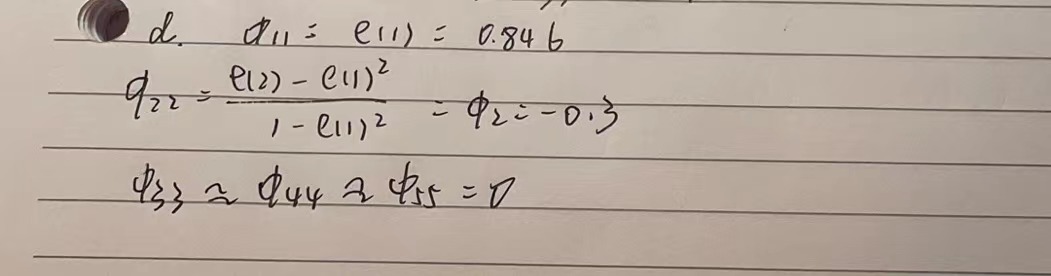 d. φ11 = ρ(1) = 0.846
φ22 = (ρ(2) - ρ(1)²) / (1 - ρ(1)²) = φ2 = -0.3
φ33 ≈ φ44 ≈ φ55 = 0